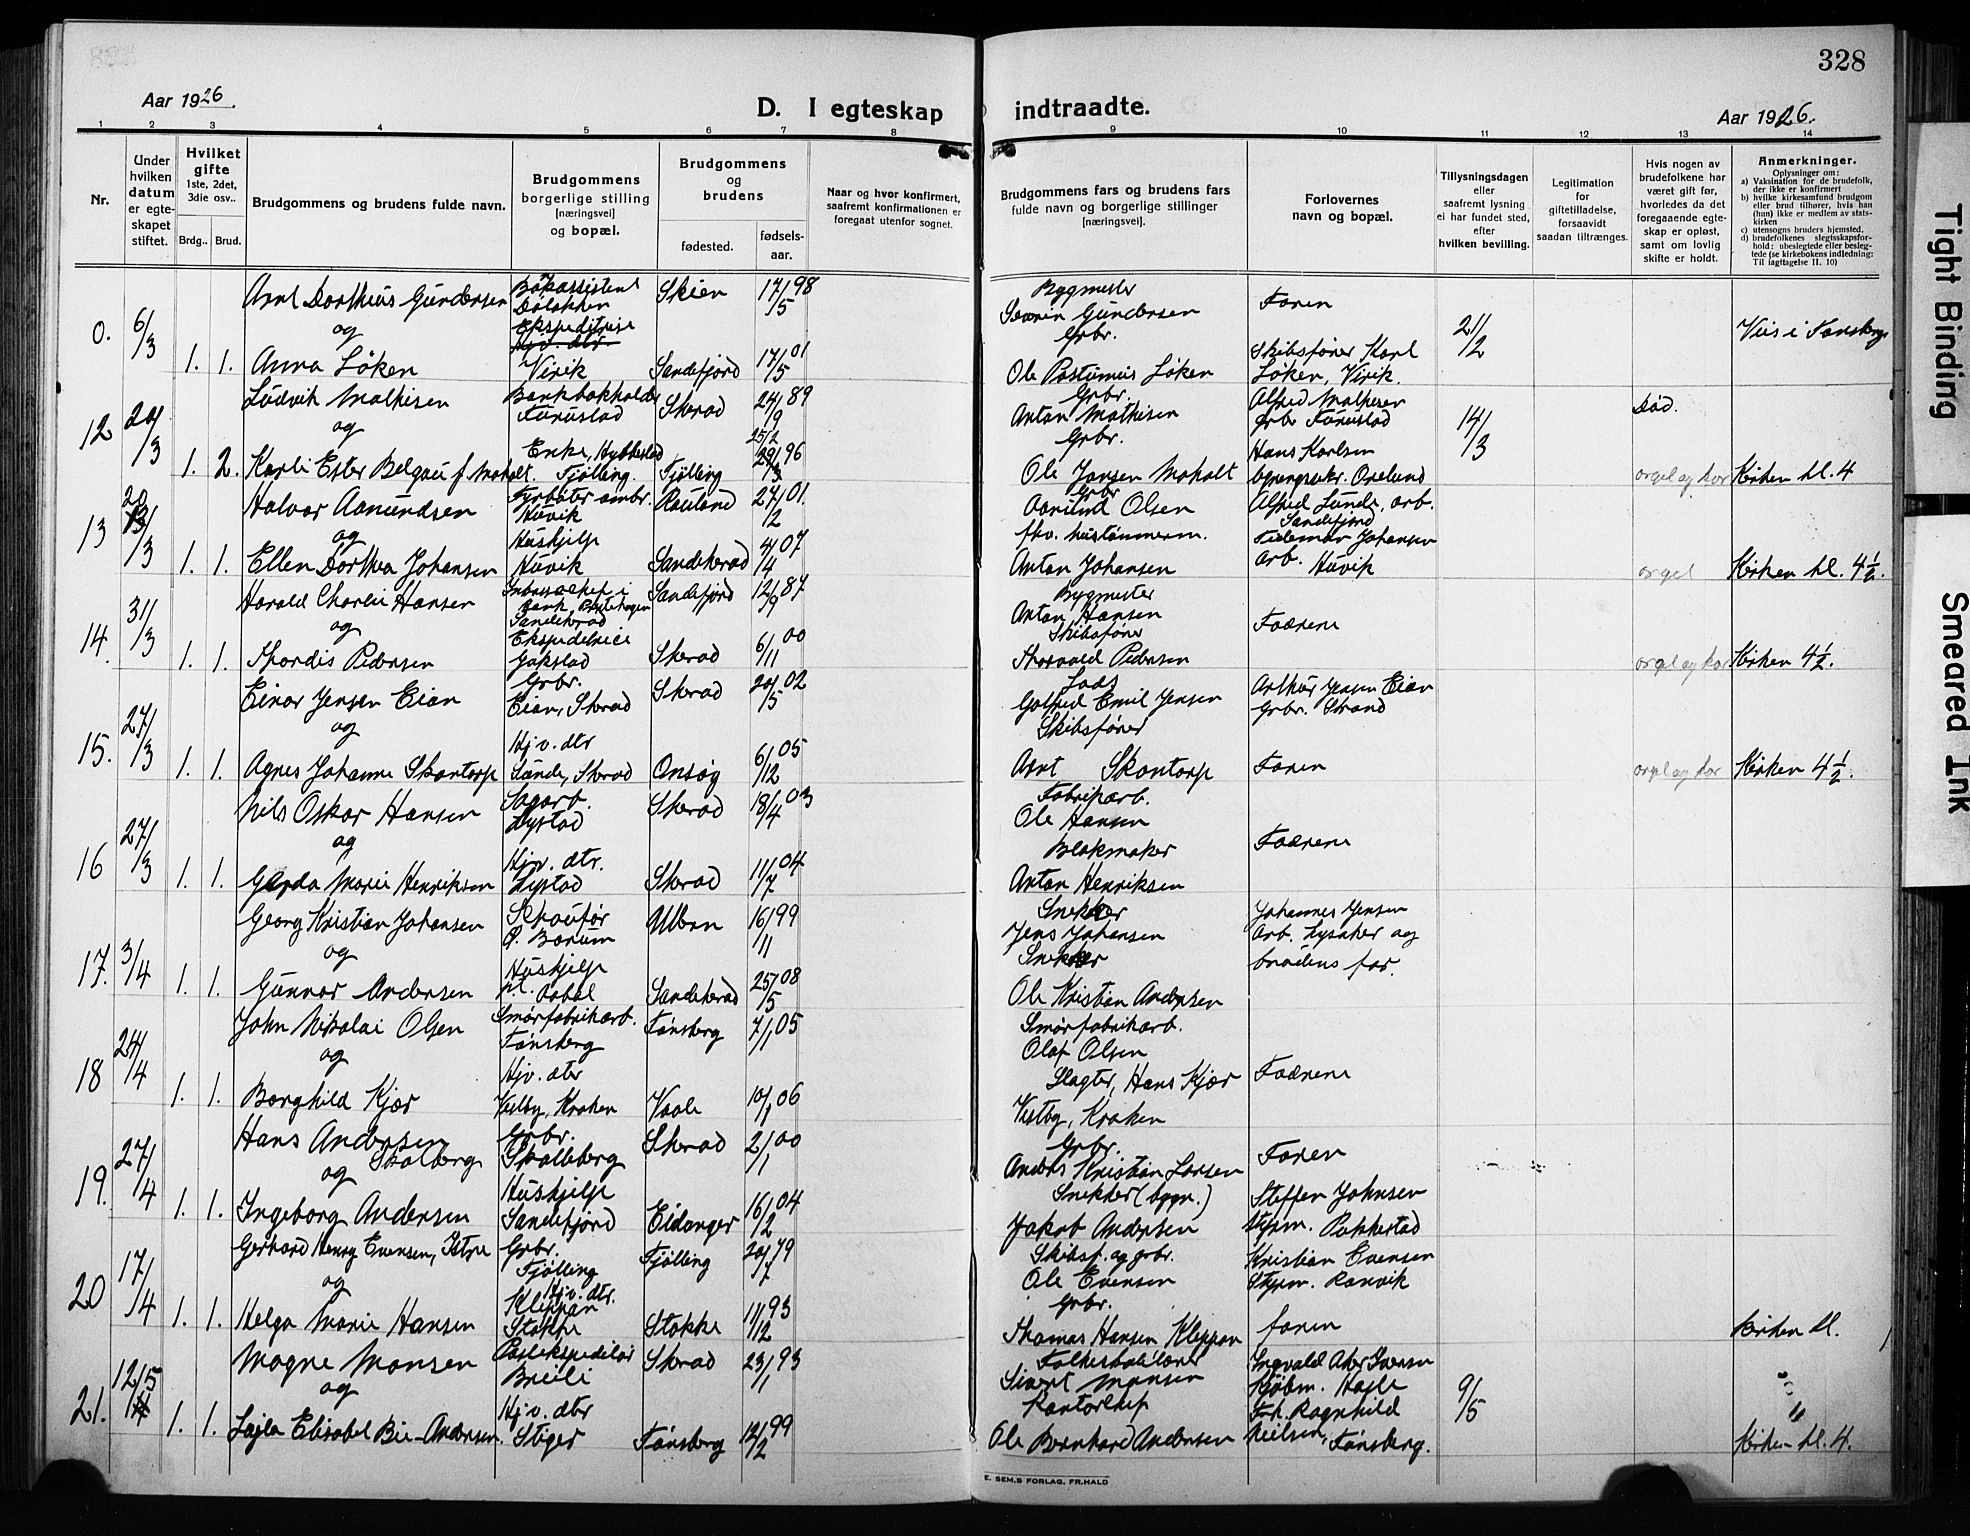 328
Aar 1926.
D. I egteskap indtraadte.
Aar 1926.
1 2 3 4 5 6 7 8 9 10 11 12 13 14
Nr.
Under hvilken datum er egte- skapet stiftet.
Hvilket gifte 1ste, 2det, 3die osv..
Brdg.. Brud.
Brudgommens og brudens fulde navn.
Brudgommens borgerlige stilling [næringsvei] og bopæl.
Brudgommens og brudens
fødested. fødsels- aar.
Naar og hvor konfirmert, saafremt konfirmationen er foregaat utenfor sognet.
Brudgommens fars og brudens fars fulde navn og borgerlige stillinger [næringsvei].
Forlovernes navn og bopæl.
Tillysningsdagen eller saafremt lysning ei har fundet sted, efter hvilken bevilling.
Legitimation for giftetilladelse, forsaavidt saadan tiltrænges.
Hvis nogen av brudefolkene har været gift før, hvorledes da det foregaaende egte- skap er opløst, samt om lovlig skifte er holdt.
Anmerkninger.
Oplysninger om:
a) Vaksination for de brudefolk, der ikke er konfirmert
b) hvilke kirkesamfund brudgom eller brud tilhører, hvis han (hun) ikke er medlem av stats- kirken
c) utensogns bruders hjemsted.
d) brudefolkenes slegtsskapsfor- hold: ubeslegtede eller besleg- tede (se kirkebokens indledning: Til iagttagelse II. 10)
0. 6/3 Arnt Dorthius Gundersen Skien 17/5 98 Bygmester
Severin Gundersen Faren
og Ekspeditrise Grbr. 21/2 Viis i Tønsberg
1. 1. Anna Løken Virik Sandefjord 17/5 01 Ole Postumius Løken Skibsfører Karl Løken, Virik.
12 20/3 Ludvik Mathisen Bankbokholder Furustad Skerad 24/9 89 Grbr. Anton Mathisen Alfred Mathisen grb Furustad 14/3 Død.
og Enke, Hybbestad 25/2 Grbr. Hans Karlsen
1. 2. Karli Ester Belgau f. Moholt. Fjølling. Fjølling 96 Ole Jansen Moholt orgel og kor Kirken kl. 4
13 20/3 Halvor Aamundsen Fyrbøter Huvik Rauland 27/2 01. Grbr Aamund Olsen Alfred Lunde, arb. Sandefjord
og Hushjelp fhv. hustømmerm. Tidemar Johansen
1. 1. Ellen Dorthea Johansen Huvik Sandeherad 4/4 07 Anton Johansen arb. Huvik orgel Kirken kl. 4½.
14. 31/3 Harald Charlie Hansen Sandeherad Sandefjord 12/9 87 Bygmester Anton Hansen Fædrene
og Ekspeditrice Skibsfører
1. 1. Thordis Pedersen Gokstad Skerad 6/11 00 Thorvald Pedersen orgel og kor Kirken 4½.
15. 27/3 Einar Jensen Eian Grbr. Eian, Skerad Skerad 20/5 02 Lods Gotfred Emil Jensen Arthur Jensen Eian Grbr. Strand
og Hj v. dtr Skibsfører
1. 1. Agnes Johanne Skontorp Lunde, Skerad Onsøy 6/12 05 Arnt Skontorp Faren orgel og kor Kirken 4½.
16 27/3 Nils Oskar Hansen Sagarb. Lystad Skerad 18/4 03 Fabrikarb. Ole Hansen Fædrene
og Hjv. dtr. Blokmaker
1. 1. Gerda Marie Henriksen Lystad Skerad 11/7 04 Anton Henriksen
17. 3/4 Georg Kristian Johansen Ø. Bærum Ullern 16/11 99 Snekker Jens Johansen Johannes Jensen Arb. Lysaker og
og Hushjelp Snekker brudens far.
1. 1. Gunnor Andersen p.t. Aabøl Sandeherad 25/5 08 Ole Kristian Andersen
18 24/4 John Nikolai Olsen Smørfabrikarb. Tønsberg Tønsberg 7/1 05 Smørfabrikarb. Olaf Olsen
og Hjv. dtr Slagter, Hans Kjær Fædrene
1. 1. Borghild Kjær Vestby, Kraken Vaale 10/1 06 Vestby, Kraken
19. 27/4 Hans Andersen Skolberg Grbr. Skolleberg Skerad 2/1 00 Grbr. Anders Kristian Larsen Faren
og Hushjelp Snekker (bygn.) Steffen Johnsen
1. 1. Ingeborg Andersen Sandefjord Eidanger 16/2 04 Jakob Andersen styrm. Pukkestad
20 17/4 Gerhard Henry Evensen, Istre Grbr. Fjølling Fjølling 20/7 79 Skibsf. og grbr. Ole Evensen Kristian Evensen Styrm. Ranvik
og Hjv. dtr. Kleppan Grbr.
1. 1. Helga Marie Hansen Stokke Stokke 11/12 93 Thomas Hansen Kleppan faren Kirken kl.
21. 12/5 Magne Monsen Postekspeditør Breili Skerad 23/1 93 Sivert Monsen Ingvald Aker Iversen Kjøbm. Hasle 9/5
og Hjv. dtr Kontorchef Frk. Ragnhild
1. 1. Lajla Elisabet Bie-Andersen. Stiger Tønsberg 12/2 99 Ole Bernhard Andersen Nielsen, Tønsberg. Kirken kl. 4.
E. SEM.S FORLAG, FR.HALD
Tight Binding
Smeared Ink